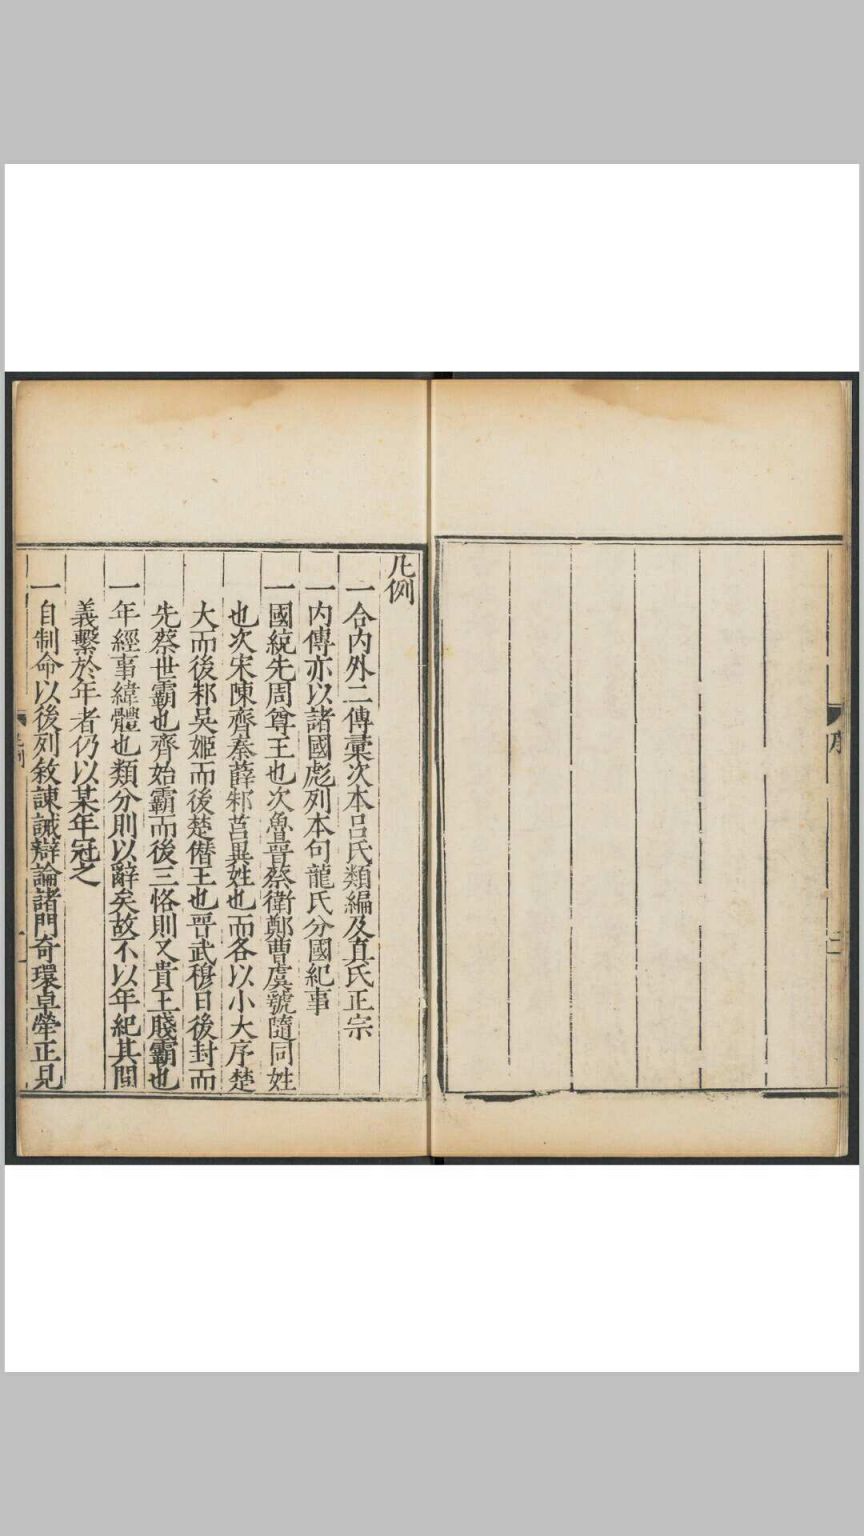 序
二
凡例
一合內外二傳彙次本呂氏類編及真氏正宗
一內傳亦以諸國彪列本句龍氏分國紀事
一國統先周尊王也次魯晉蔡衛鄭曹虞虢隨同姓
也次宋陳齊秦薛邾莒異姓也而各以小大序楚
大而後邾吳姬而後楚僭王也晉武穆曰後封而
先蔡世霸也齊始霸而後三恪則又貴王賤霸也
一年經事緯體也類分則以辭矣故不以年紀其間
義繫於年者仍以某年冠之
一自制命以後列敘諫誡辯論諸門奇環卓犖正見
凡例
一